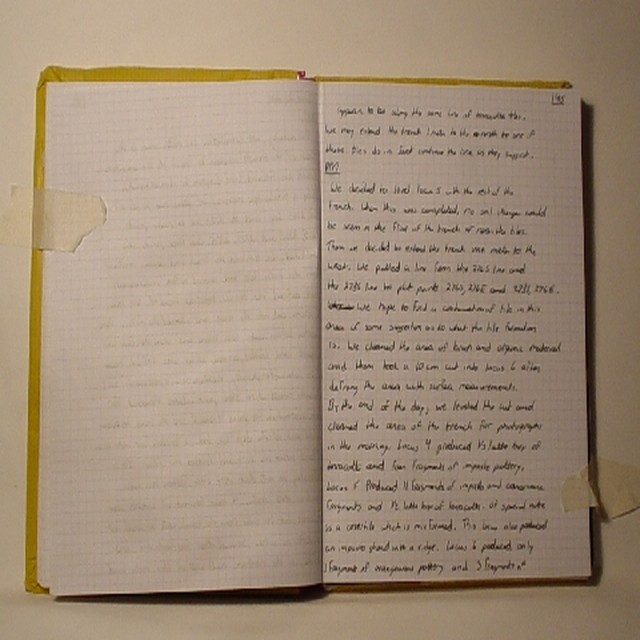 appears to be along the same line of terracotta tiles.
We may extend the trench 1 meter to the north to see if
these tiles do in fact continue the line as they suggest.
PM
We decided to level locus 5 with the rest of the
trench. When this was completed, no soil changes could
be seen in the floor of the trench or near the tiles.
Then we decided to extend the trench one meter to the
west. We pulled a line from the 276S line and
the 277S line to plot points
We hope to find a continuation of tile in this
area or some suggestion as to what the tile formation
is. We cleaned the area of brush and organic material
and then took a 10 cm cut into locus 6 after
defining the area with surface measurements.
By the end of the day, we leveled the cut and
cleaned the area of the trench for photographs
in the morning. Locus 4 produced 1/2 latte box of
terracotta and four fragments of impasto pottery.
Locus 5 Produced 11 fragments of impasto and coarseware
fragments and 1/2 latte box of terracotta. Of special note
is a cover tile which is misformed. This locus also produced
an impasto stand with a ridge. Locus 6 produced only
1 fragment of orangeware pottery and 3 fragments of